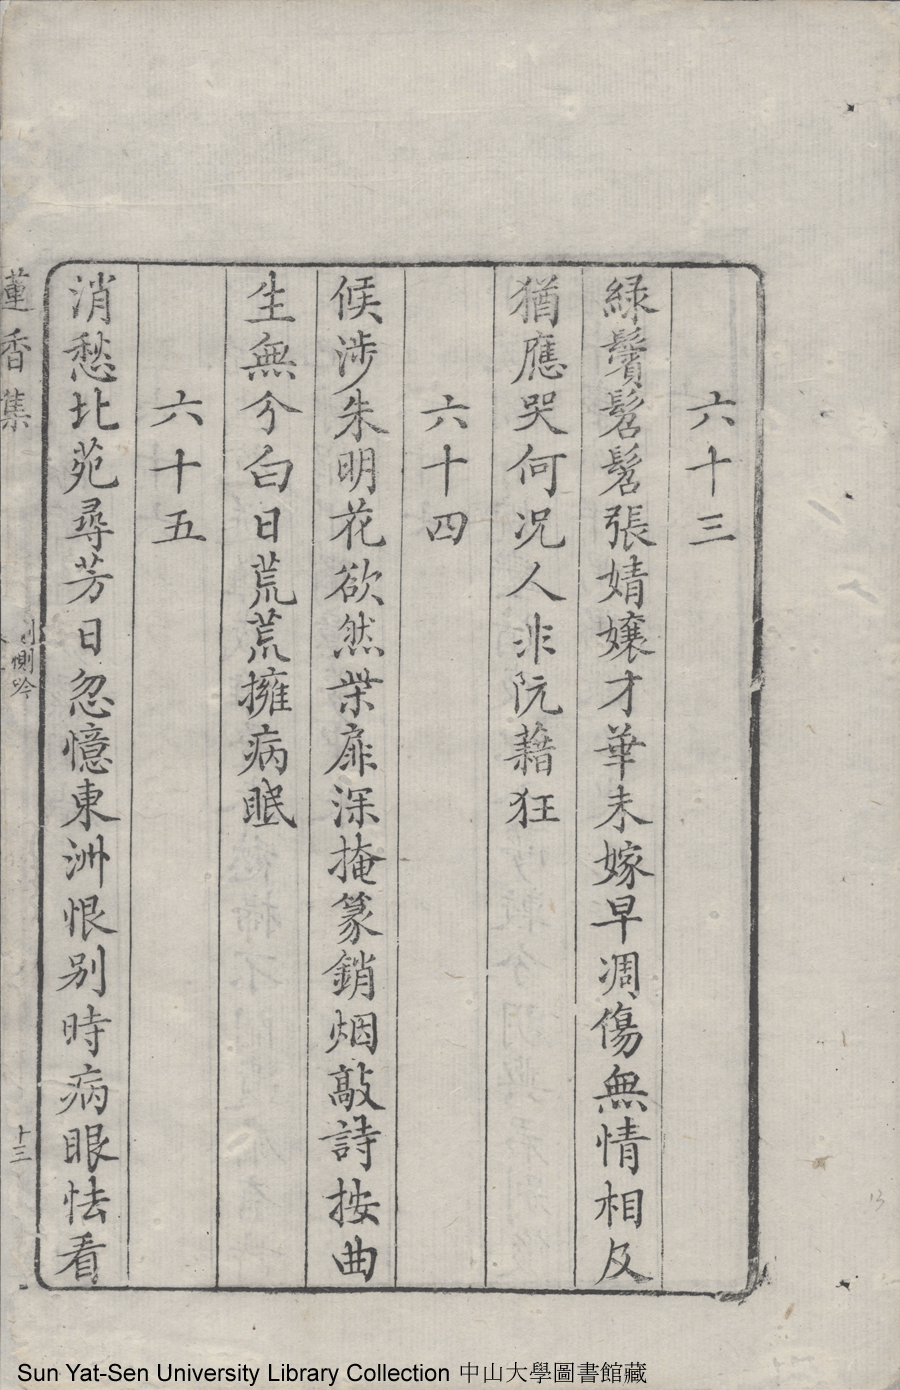 六十三
綠鬢髫髫張婧孃才華未嫁早凋傷無情相及
猶應哭何况人非阮藉狂
六十四
候涉朱明花欲然柴扉深掩篆銷烟敲詩按曲
生無分白日荒荒擁病眠
六十五
消愁北苑尋芳日忽憶東洲恨別時病眼怯看
蓮香集
惻吟
十三
13
Sun Yat-Sen University Library Collection 中山大學圖書館藏